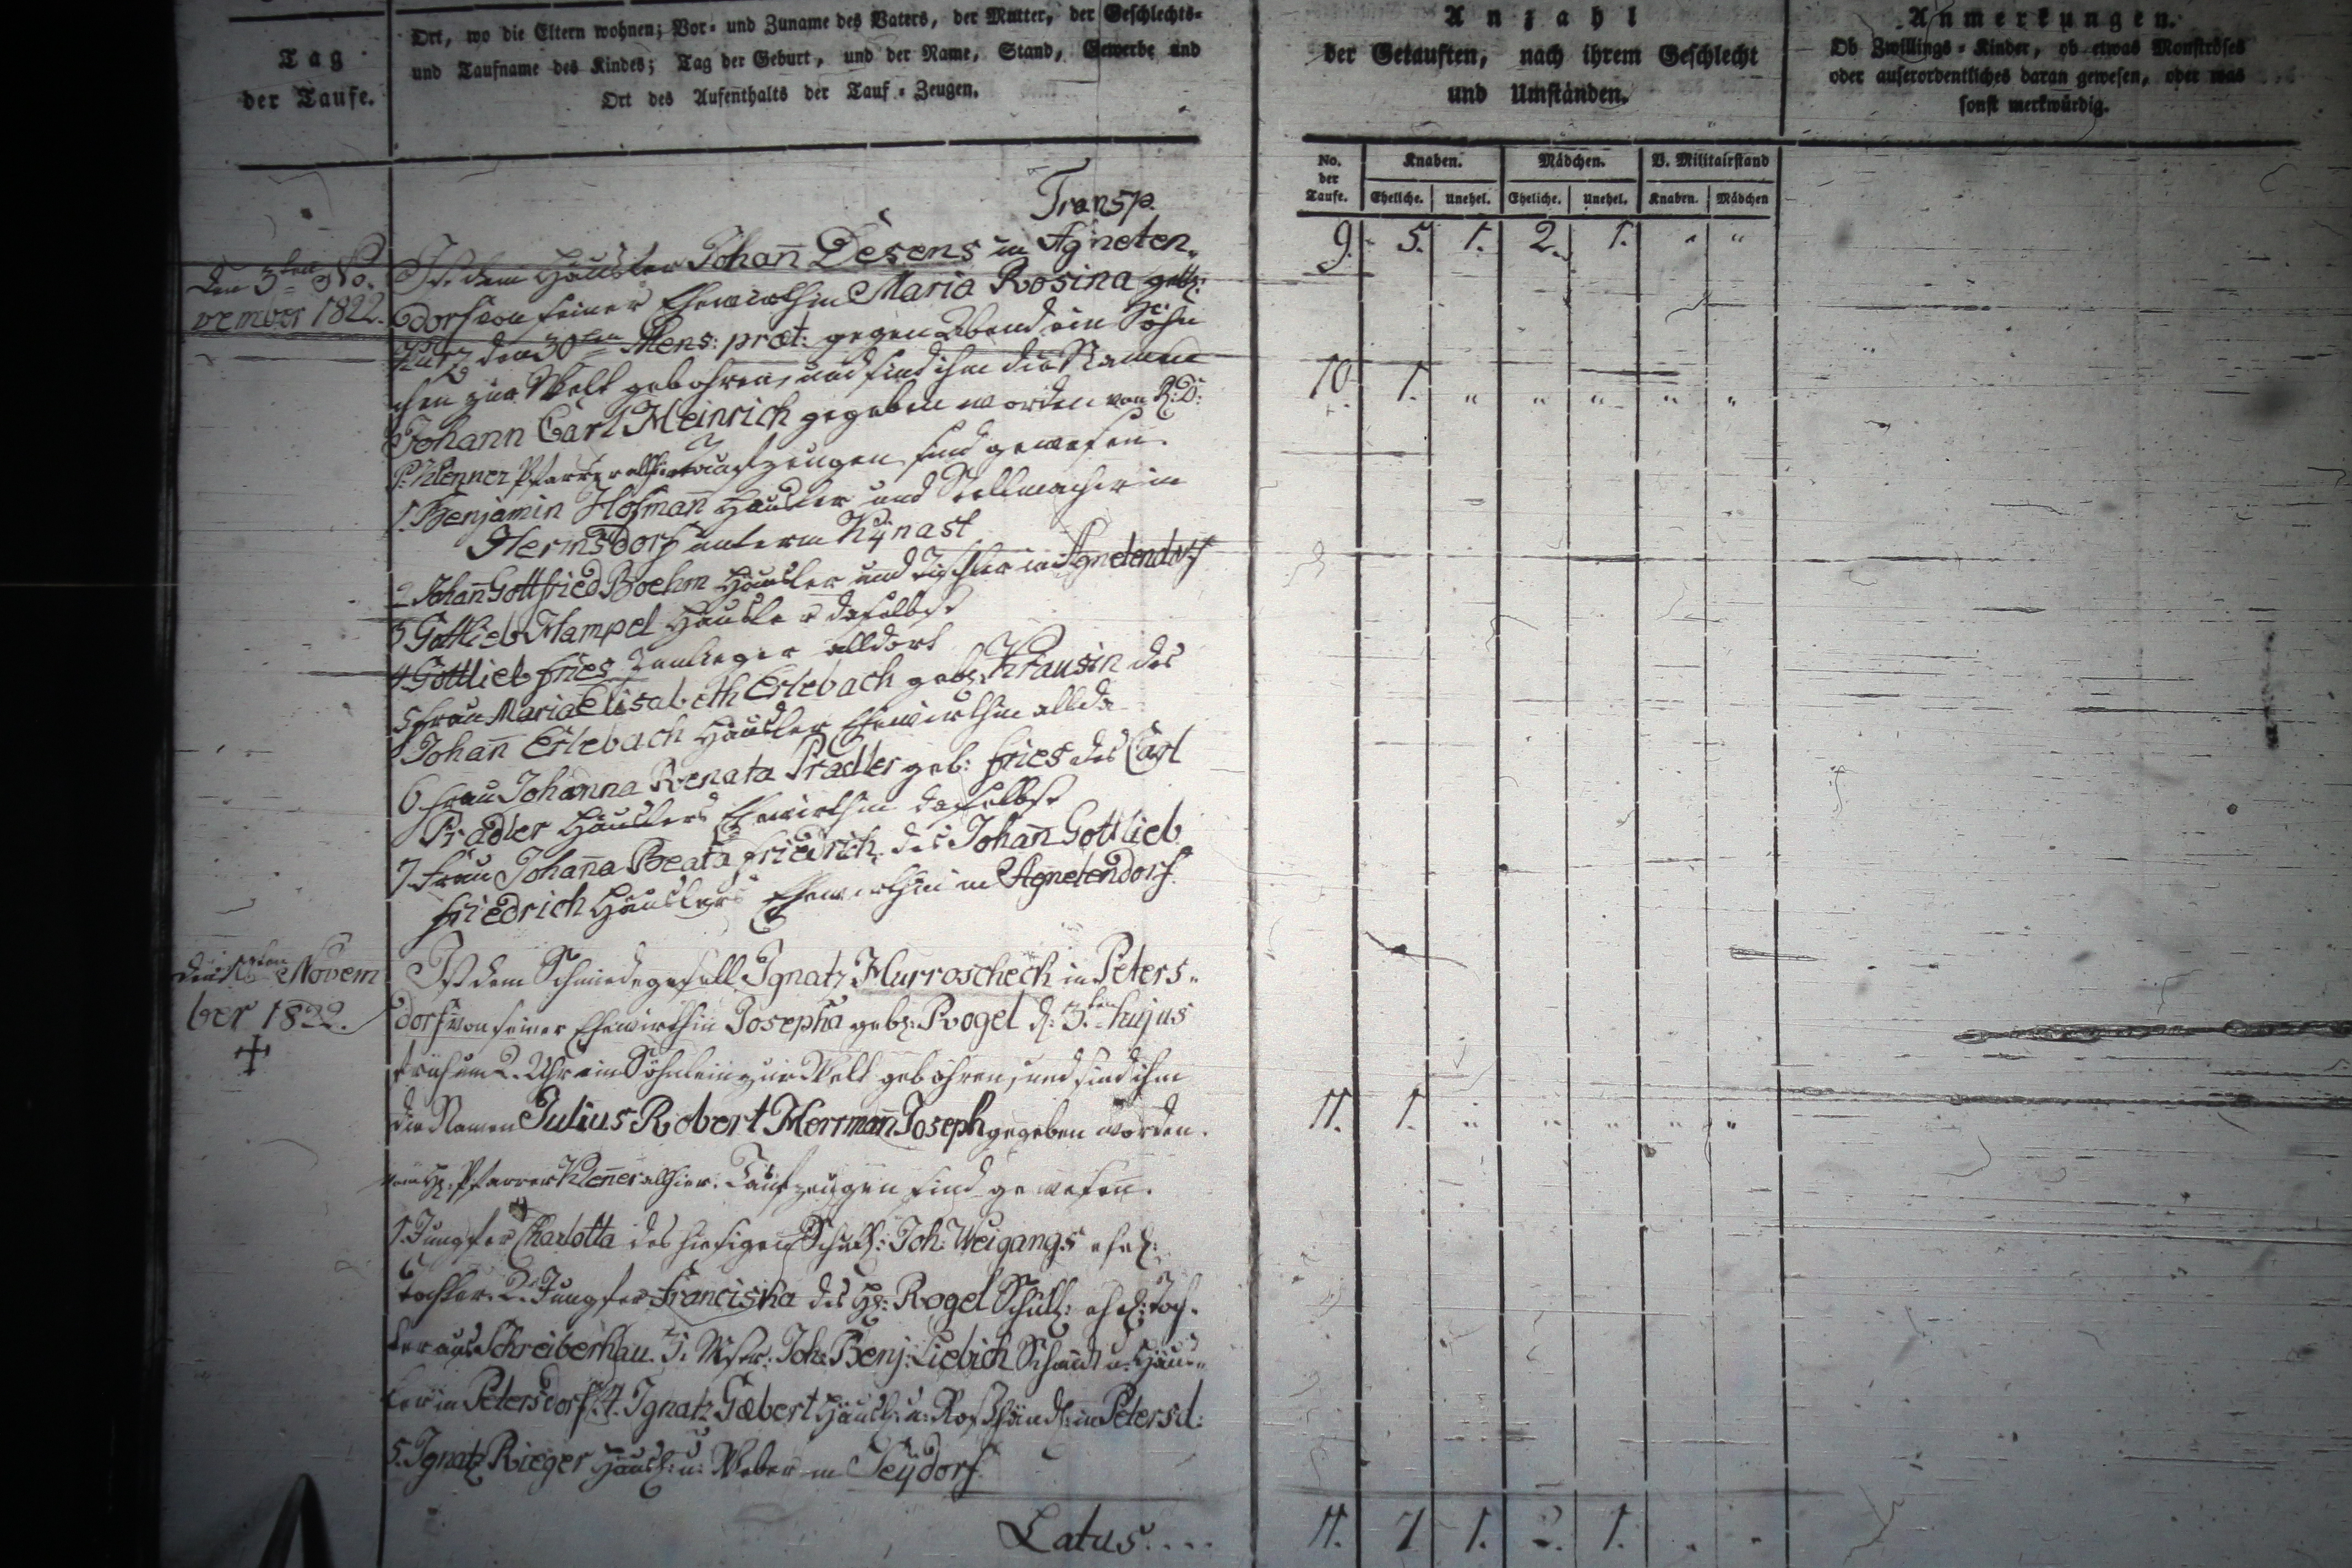 Tag
der Taufe.
Ort, wo die Eltern wohnen; Vor- und Zuname des Vaters, der Mutter, der Geschlechts-
und Taufname des Kindes; Tag der Geburt, und der Name, Stand, Gewerbe und
Ort des Aufenthalts der Tauf-Zeugen.
Anzahl
der Getauften, nach ihrem Geschlecht
und Umständen.
Anmerkungen.
Ob Zwillings-Kinder, ob etwas Monströses
oder außerordentliches daran gewesen, oder was
sonst merkwürdig.
No. der Taufe.
Knaben. Mädchen. V. Militairstand
Eheliche. Unehel. Eheliche. Unehel. Knaben. Mädchen
Transp.
9. 5. 1. 2. 1. " "
Den 3ten No-
vember 1822.
Ist dem Häusler Johan̄ Desens in Agneten-
dorf von seiner Ehewirthin Maria Rosina geb:
Kurz den 30ten Mens: præt: gegen Abend ein Söhn
chen zur Welt gebohren, und sind ihm die Namen
Johann Carl Heinrich gegeben worden von
Klenner Pfarrer allhier Taufzeugen sind gewesen.
1. Benjamin Hofman̄ Häusler und Stellmacher in
Hermsdorf unterm Kÿnast
2 Johan̄ Gottfried Boehm Häusler und Tischler in Agnetendorf
3 Gottlieb Hampel Häusler daselbst
4 Gottlieb Fries Inlieger alldort
5 Frau Maria Elisabeth Erlebach geb: Krausin des
Johan̄ Erlebach Häusler Ehewirthin allda
6 Frau Johanna Renata Pradler geb: Fries des Carl
Pradler Häuslers Ehewirthin daselbst
7. Frau Johan̄a Beata Friedrich des Johan̄ Gottlieb
Friedrich Häuslers Ehewirthin in Agnetendorf.
10 1. " " " " "
Novem
ber 1822.
Ist dem Schmiedegesell Ignatz Hurroscheck in Peters-
dorf von seiner Ehewirthin Josepha geb: Rogel d: 3.ten hujus
früh um 2. Uhr ein Söhnlein zur Welt gebohren, und sind ihm
die Namen Julius Robert Herrman̄ Joseph gegeben worden.
vom H: Pfarrer Klen̄er allhier. Taufzeugen sind gewesen.
1. Jungfer Charlotta des hiesigen Schull: Joh: Weigangs ehel:
Tochter. 2. Jungfer Franciska des H: Rogel Schull: ehel: Toch-
ter aus Schreiberhau. 3. Mstr: Joh: Benj: Liebich Schmidt u: Häus-
ler in Petersdorf. 4. Ignatz Gæbert Häusl: u: Roßhändl: in Petersd:
5. Ignatz Rieger Häusl: u: Weber in Seÿdorf.
11. 1. " " " " "
Latus....
11. 7 1. 2. 1. " "